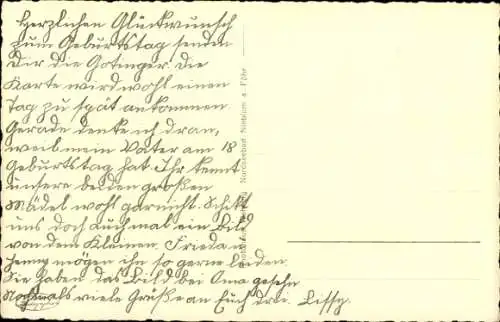 Herzlichen Glückwunsch
zum Geburtstag senden
Dir die Gotinger. Die
Karte wird wohl einen
Tag zu spät ankommen.
Gerade denke ich dran,
weil mein Vater am 18
Geburtstag hat. Ihr kennt
unsere beiden großen
Mädel wohl garnicht. Schickt
uns doch auch mal ein Bild
von dem Kleinen. Frieda u
Jenny mögen ihn so gerne leiden.
Sie haben das Bild bei Oma gesehn
Nochmals viele Grüße an Euch drei. Lissy.
Nordseebad Nieblum a. Föhr